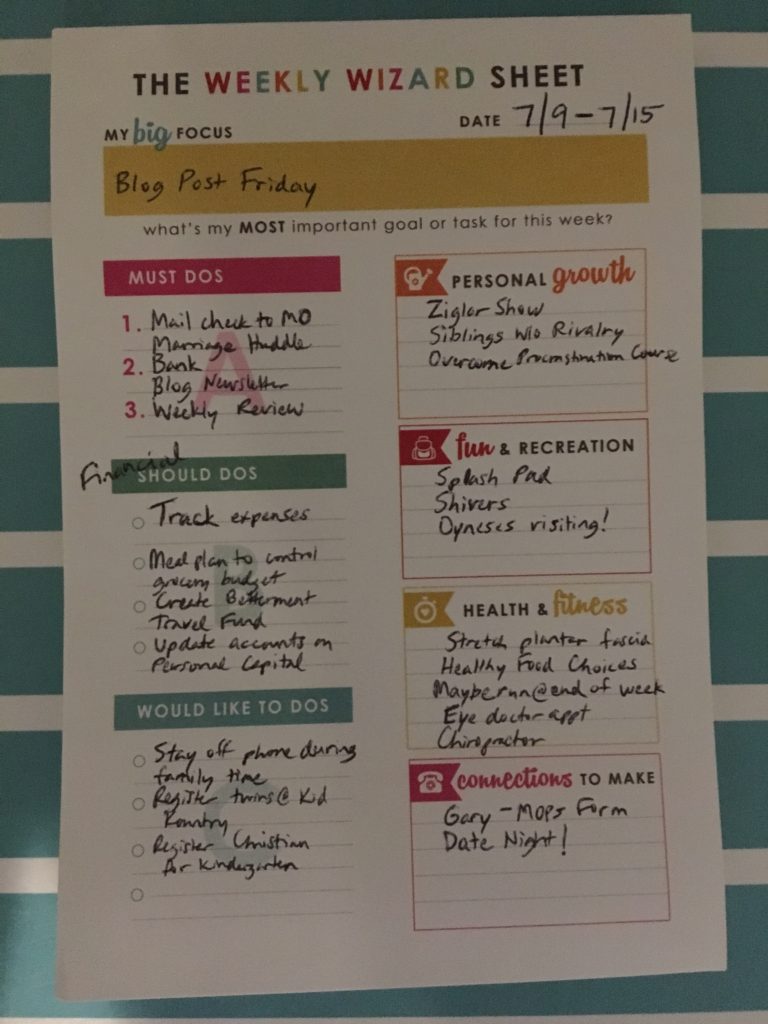 THE WEEKLY WIZARD SHEET
MY big FOCUS
DATE 7/9-7/15
Blog Post Friday
what's my MOST important goal or task for this week?
MUST DOS
1. Mail check to MO
Marriage Huddle
2. Bank
Blog Newsletter
3. Weekly Review
A
Financial
SHOULD DOS
Track expenses
Meal plan to control
grocery budget
Create Betterment
Travel Fund
Update accounts on
Personal Capital
B
WOULD LIKE TO DOS
Stay off phone during
family time
Register twins@ Kid
Kountry
Register Christian
for Kindergarten
C
PERSONAL growth
Ziglar Show
Siblings w/o Rivalry
Overcome Procrastination Course
fun & RECREATION
Splash Pad
Shivers
visiting!
HEALTH & fitness
Stretch planter fascia
Healthy Food Choices
Maybe run@end of week
Eye doctor appt
Chiropractor
connections TO MAKE
Gary - Mops Form
Date Night!